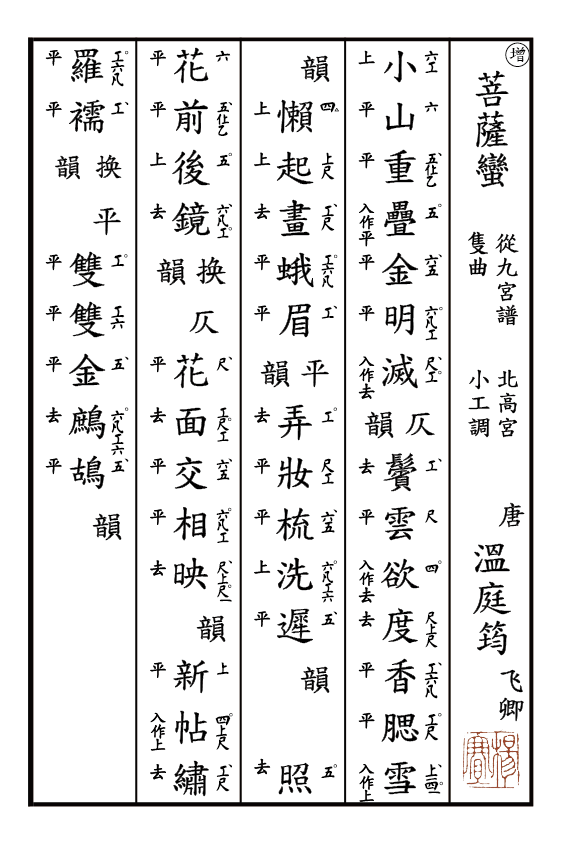 增
菩薩蠻
從九宮譜
隻曲
北高宮
小工調
唐
溫庭筠
飞卿
六工 六 五仩乙 五 六五 六凡工 尺工 工 尺 四 尺上尺 工六凡 工尺 上四一
小山重疊金明滅 仄韻 鬢雲欲度香腮雪
上 平 平 入作平 平 平 入作去 去 平 入作去 去 平 平 入作上
四 上尺 工尺 工六凡 工 工 尺工 六五 六凡工六 五 五
韻 懶起畫蛾眉 平韻 弄妝梳洗遲 韻 照
上 上 去 平 平 去 平 平 上 平 去
六 五仩乙 五 六凡工 尺 工尺工 六五 六凡工 尺上尺一 上 四上尺 工尺
花前後鏡 换仄韻 花面交相映 韻 新帖繡
平 平 上 去 平 去 平 平 去 平 入作上 去
工六凡 工 工 工六 五 六凡工六 五
羅襦 换平韻 雙雙金鷓鴣 韻
平 平 平 平 平 去 平